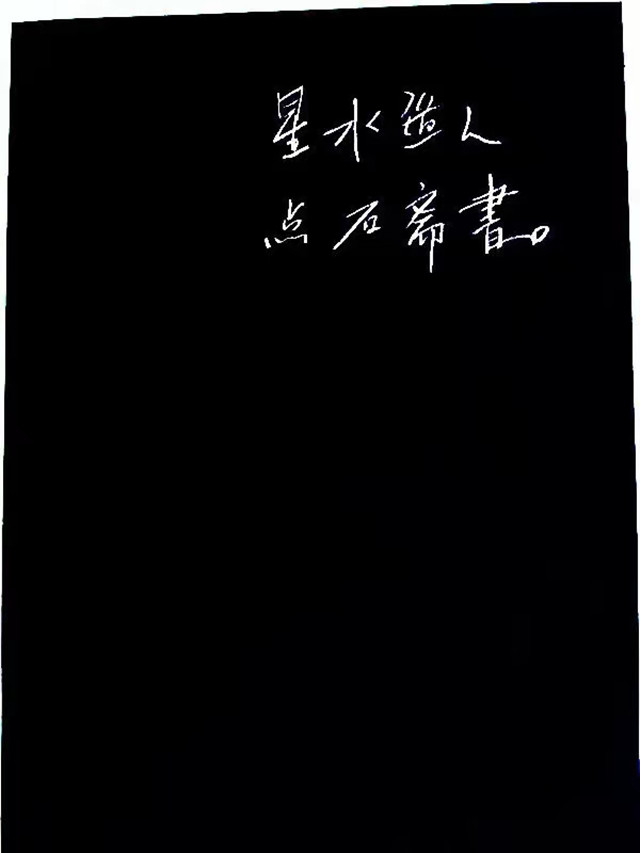 星水道人
点石斋書。